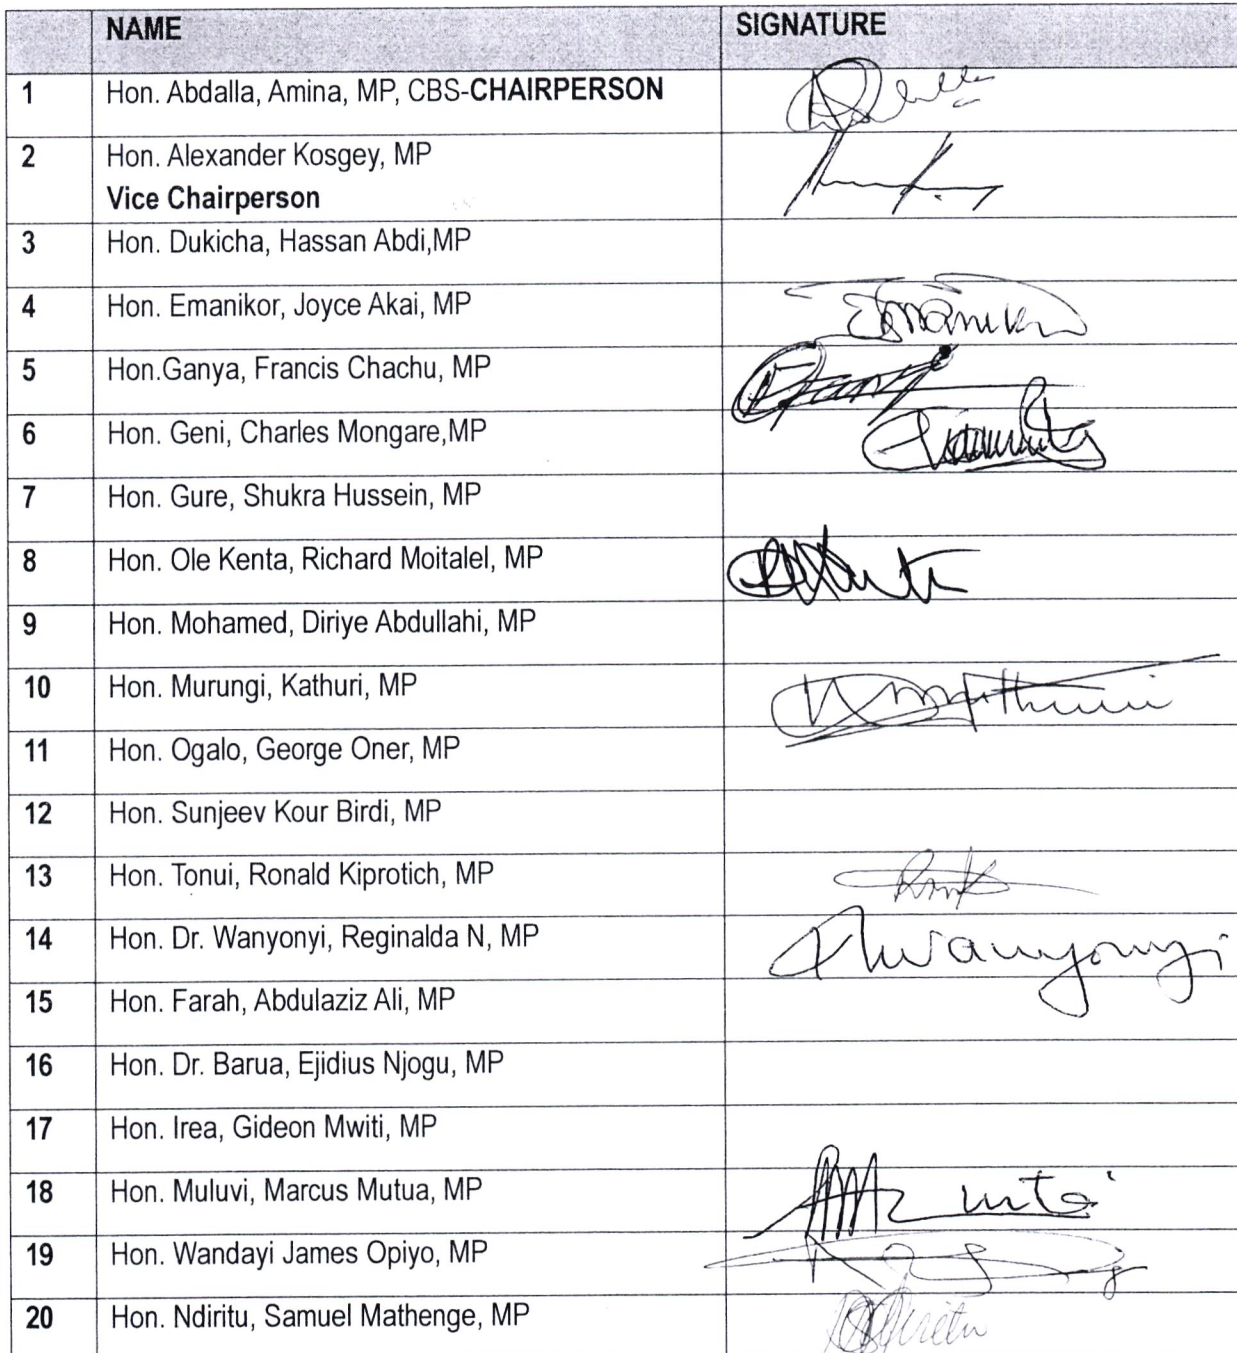 NAME SIGNATURE
1 Hon. Abdalla, Amina, MP, CBS-CHAIRPERSON
2 Hon. Alexander Kosgey, MP
Vice Chairperson
3 Hon. Dukicha, Hassan Abdi,MP
4 Hon. Emanikor, Joyce Akai, MP
5 Hon.Ganya, Francis Chachu, MP
6 Hon. Geni, Charles Mongare,MP
7 Hon. Gure, Shukra Hussein, MP
8 Hon. Ole Kenta, Richard Moitalel, MP
9 Hon. Mohamed, Diriye Abdullahi, MP
10 Hon. Murungi, Kathuri, MP
11 Hon. Ogalo, George Oner, MP
12 Hon. Sunjeev Kour Birdi, MP
13 Hon. Tonui, Ronald Kiprotich, MP
14 Hon. Dr. Wanyonyi, Reginalda N, MP
15 Hon. Farah, Abdulaziz Ali, MP
16 Hon. Dr. Barua, Ejidius Njogu, MP
17 Hon. Irea, Gideon Mwiti, MP
18 Hon. Muluvi, Marcus Mutua, MP
19 Hon. Wandayi James Opiyo, MP
20 Hon. Ndiritu, Samuel Mathenge, MP